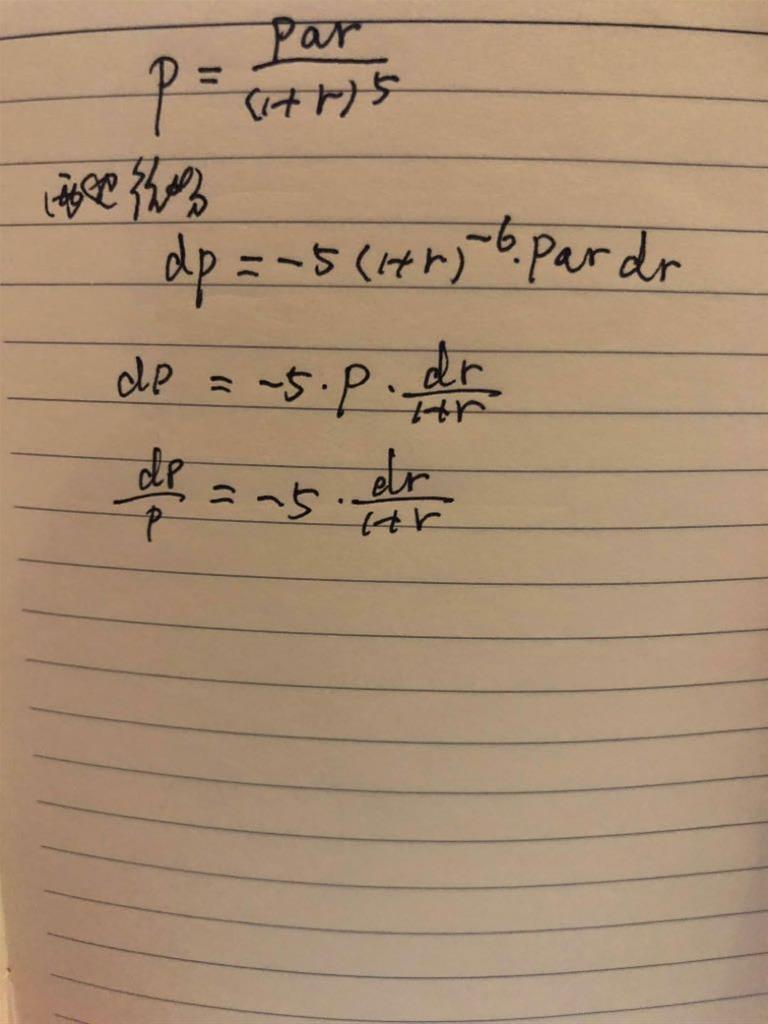 p = par / (1+r)^5
两边微分
dp = -5 (1+r)^-6 · par dr
dp = -5 · p · dr / 1+r
dp / p = -5 · dr / 1+r